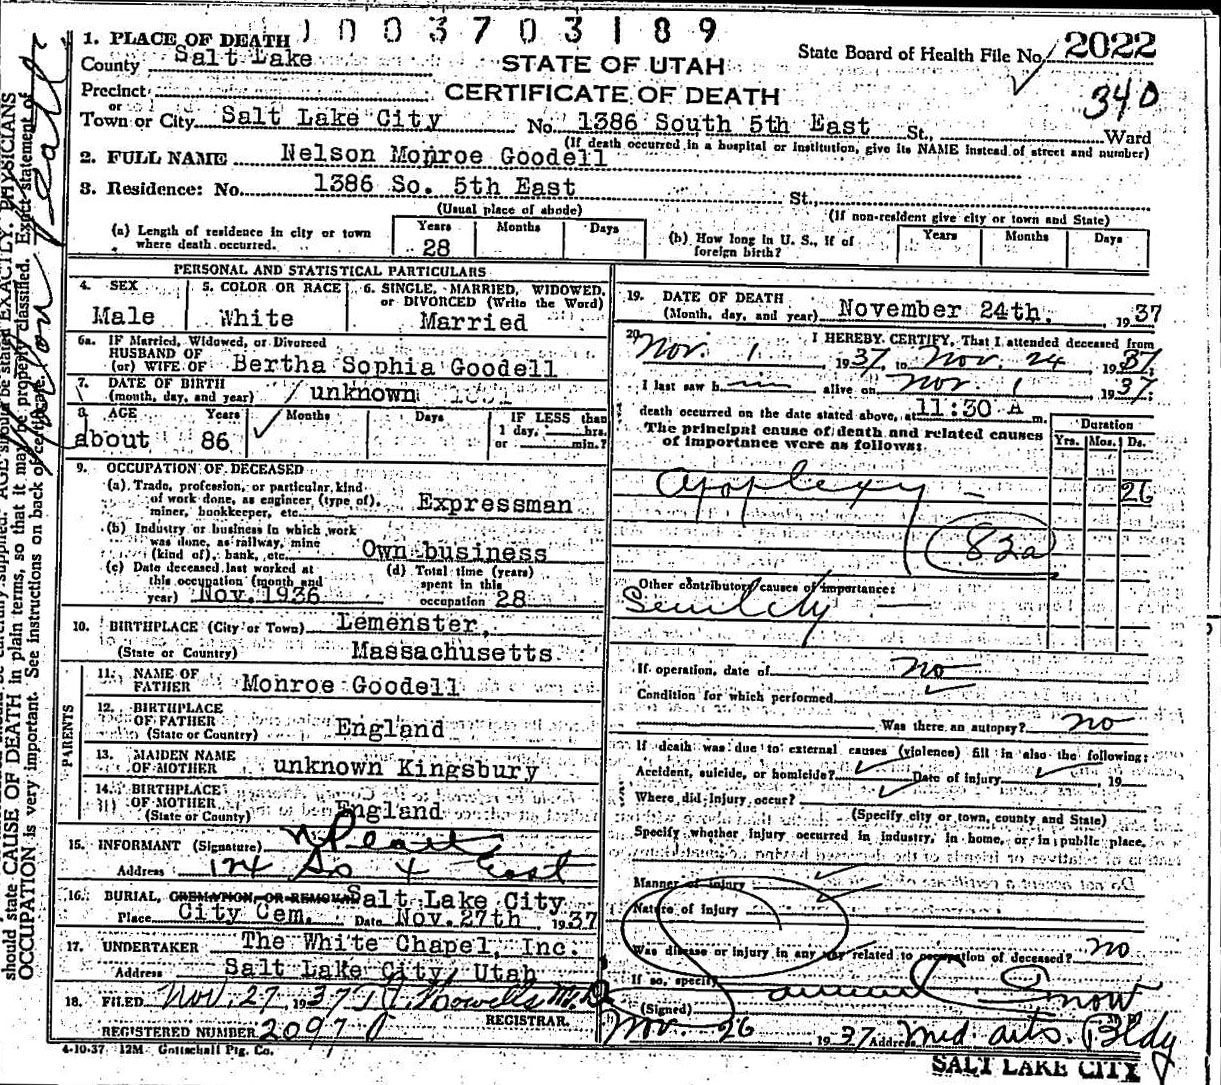 1003703189
1. PLACE OF DEATH
County Salt Lake
STATE OF UTAH
State Board of Health File No. 2022
Precinct
CERTIFICATE OF DEATH
340
or
Town or City Salt Lake City No. 1386 South 5th East St., Ward
(If death occurred in a hospital or institution, give its NAME instead of street and number)
2. FULL NAME Nelson Monroe Goodell
3. Residence: No. 1386 So. 5th East St.,
(Usual place of abode)
(If non-resident give city or town and State)
(a) Length of residence in city or town where death occurred.
Years Months Days
28
(b) How long in U. S., if of foreign birth?
Years Months Days
PERSONAL AND STATISTICAL PARTICULARS
4. SEX
Male
5. COLOR OR RACE
White
6. SINGLE, MARRIED, WIDOWED, or DIVORCED (Write the Word)
Married
6a. IF Married, Widowed, or Divorced
HUSBAND OF
(or) WIFE OF Bertha Sophia Goodell
7. DATE OF BIRTH
(month, day, and year) unknown
8. AGE Years Months Days
IF LESS than
1 day, hrs.
or min.?
about 86
9. OCCUPATION OF DECEASED
(a) Trade, profession, or particular kind
of work done, as engineer (type of),
miner, bookkeeper, etc. Expressman
(b) Industry or business in which work
was done, as railway, mine
(kind of), bank, etc. Own business
(c) Date deceased last worked at
this occupation (month and
year) Nov. 1936
(d) Total time (years)
spent in this
occupation 28
10. BIRTHPLACE (City or Town) Lemenster,
(State or Country) Massachusetts
PARENTS
11. NAME OF
FATHER Monroe Goodell
12. BIRTHPLACE
OF FATHER
(State or Country) England
13. MAIDEN NAME
OF MOTHER unknown Kingsbury
14. BIRTHPLACE
OF MOTHER
(State or County) England
15. INFORMANT (Signature)
Address So 4 East
16. BURIAL, CREMATION, OR REMOVAL Salt Lake City
Place City Cem. Date Nov. 27th 1937
17. UNDERTAKER The White Chapel, Inc.
Address Salt Lake City, Utah
18. FILED Nov. 27 1937 Howells M.D.
REGISTRAR.
REGISTERED NUMBER 2097
4-10-37 12M Gottschall Ptg. Co.
19. DATE OF DEATH
(Month, day, and year) November 24th. , 1937
20. I HEREBY CERTIFY, That I attended deceased from
Nov. 1 1937, to Nov. 24 1937.
I last saw him alive on Nov 1 1937.
death occurred on the date stated above, at 11:30 A m.
The principal cause of death and related causes
of importance were as follows:
Duration
Yrs. Mos. Ds.
Apoplexy 26
82a
Other contributory causes of importance:
Senility
If operation, date of no
Condition for which performed
Was there an autopsy? no
If death was due to external causes (violence) fill in also the following:
Accident, suicide, or homicide? Date of injury , 19
Where did injury occur?
(Specify city or town, county and State)
Specify whether injury occurred in industry, in home, or in public place.
Manner of injury
Nature of injury
Was disease or injury in any way related to occupation of deceased? no
If so, specify
(Signed) Snow
Nov. 26 1937 Address Med arts. Bldg
SALT LAKE CITY
should state CAUSE OF DEATH in plain terms, so that it may be properly classified. Exact statement of
OCCUPATION is very important. See instructions on back of certificate.